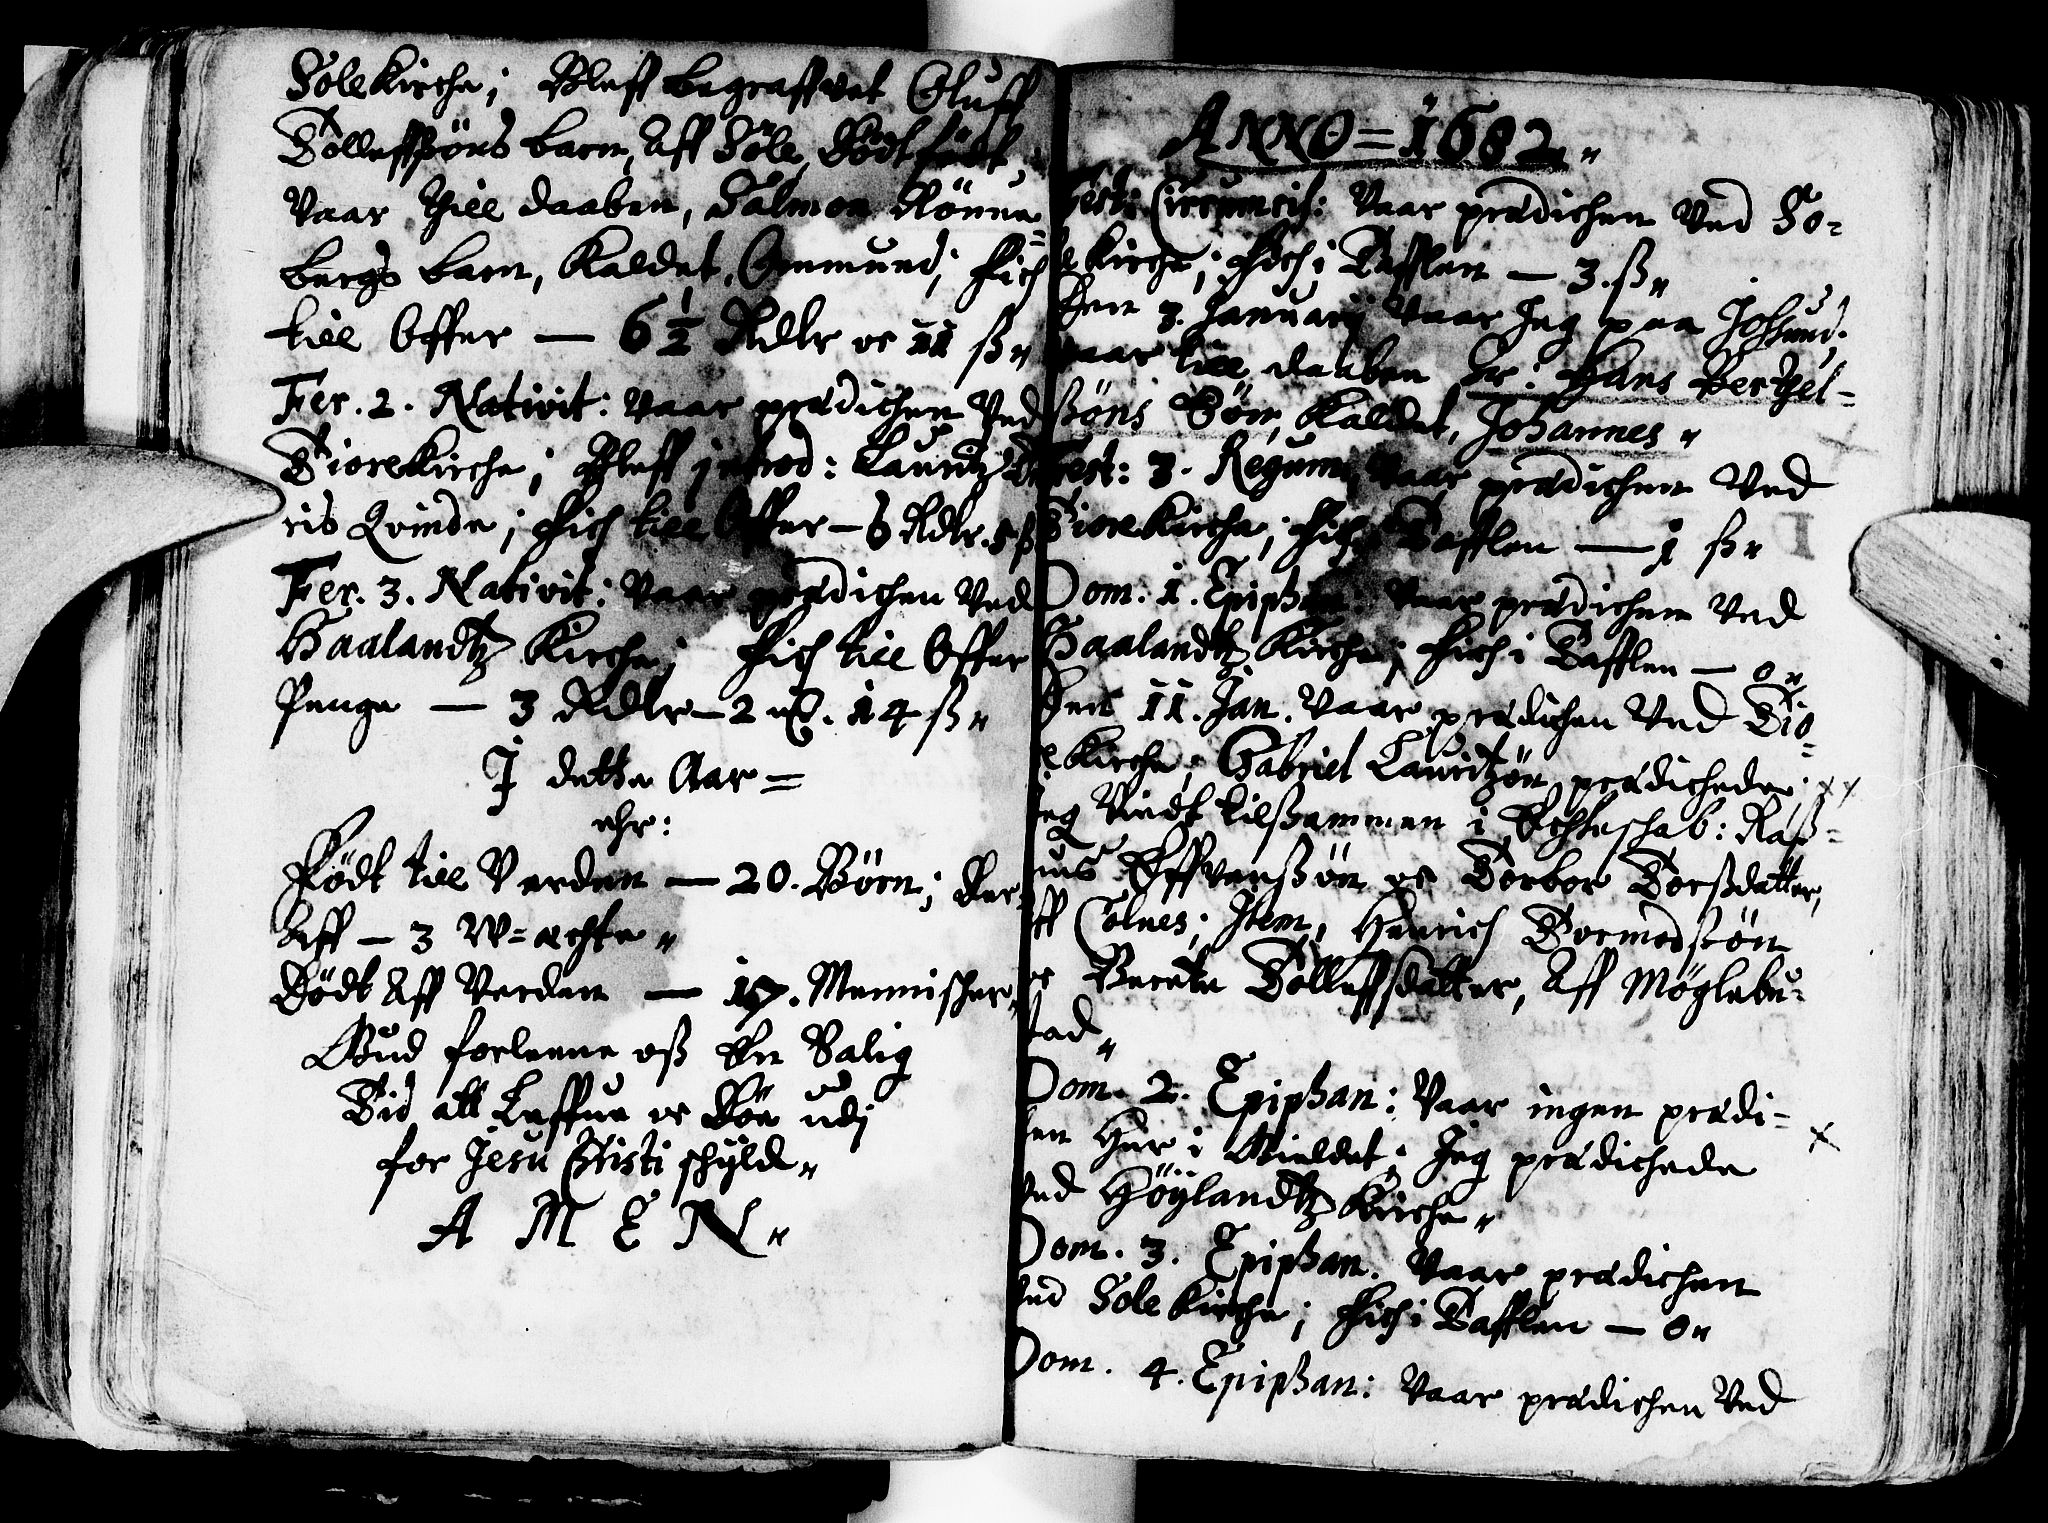 Solekirche; Bleff begraffvet Oluff
Tolleffßöns barn, Aff Sole, dödt födt,
Vaar thill daaben, Salmon Rönne=
bergs barn, Kaldet, Gunmund; fich
till Offer — 6 1/2 Rdlr oc 11 ß„
Fer. 2. Nativit: Vaar prædichen Ved
Tiorekirche; Bleff introd: Lauritz
ris Qvinde; fich till Offer — 6 Rdlr. 5 ß
Fer. 3. Nativit: Vaar prædichen Ved
Haalandtz Kirche; fich till Offer
Penge — 3 Rdlr — 2 . 14 ß„
I dette Aar =
ehr:
Födt till Verden — 20. Börn; der
Aff — 3 W=æchte„
Dödt Aff Verden — 17. Mennischer,
Gud forleene oß En Salig
Tid att Leffue oc Döe udj
for Jesu Christi schÿld„
A M E N„
ANNO = 1682„
Fest: Circumcis: Vaar prædichen Ved So=
le Kirche; fich i Tafflen — 3. ß„
Den 3. Januarij Vaar Jeg paa Joßund.
Vaar till daaben Hr: Hans Berthel=
ßöns Sön, Kaldet, Johannes„
Fest: 3. Regum, Vaar prædichen Ved
Tiorekirche; fich i Tafflen — 1 ß„
Dom. 1. Epiphan: Vaar prædichen Ved
Haalandtz Kirche; fich i Tafflen — 0„
Den 11. Jan. Vaar prædichen Ved Tio=
re Kirche; Gabriel Lauritzön prædichede; xx
Jeg Viedt tilßammen i Echteschab: Raß=
mus Effvenßön oc Torbor Torßdatter,
Aff Colnes; Item, Henrich Tormodßön
oc Berete Tolleffsdatter, Aff Möglebu=
stad„
Dom. 2. Epiphan: Vaar ingen prædi= x
chen Her i Gieldet; Jeg prædichede
Ved Höÿlandtz Kirche„
Dom. 3. Epiphan. Vaar prædichen
Ved Sole Kirche; fich i Tafflen — 0„
Dom. 4. Epiphan: Vaar prædichen Ved